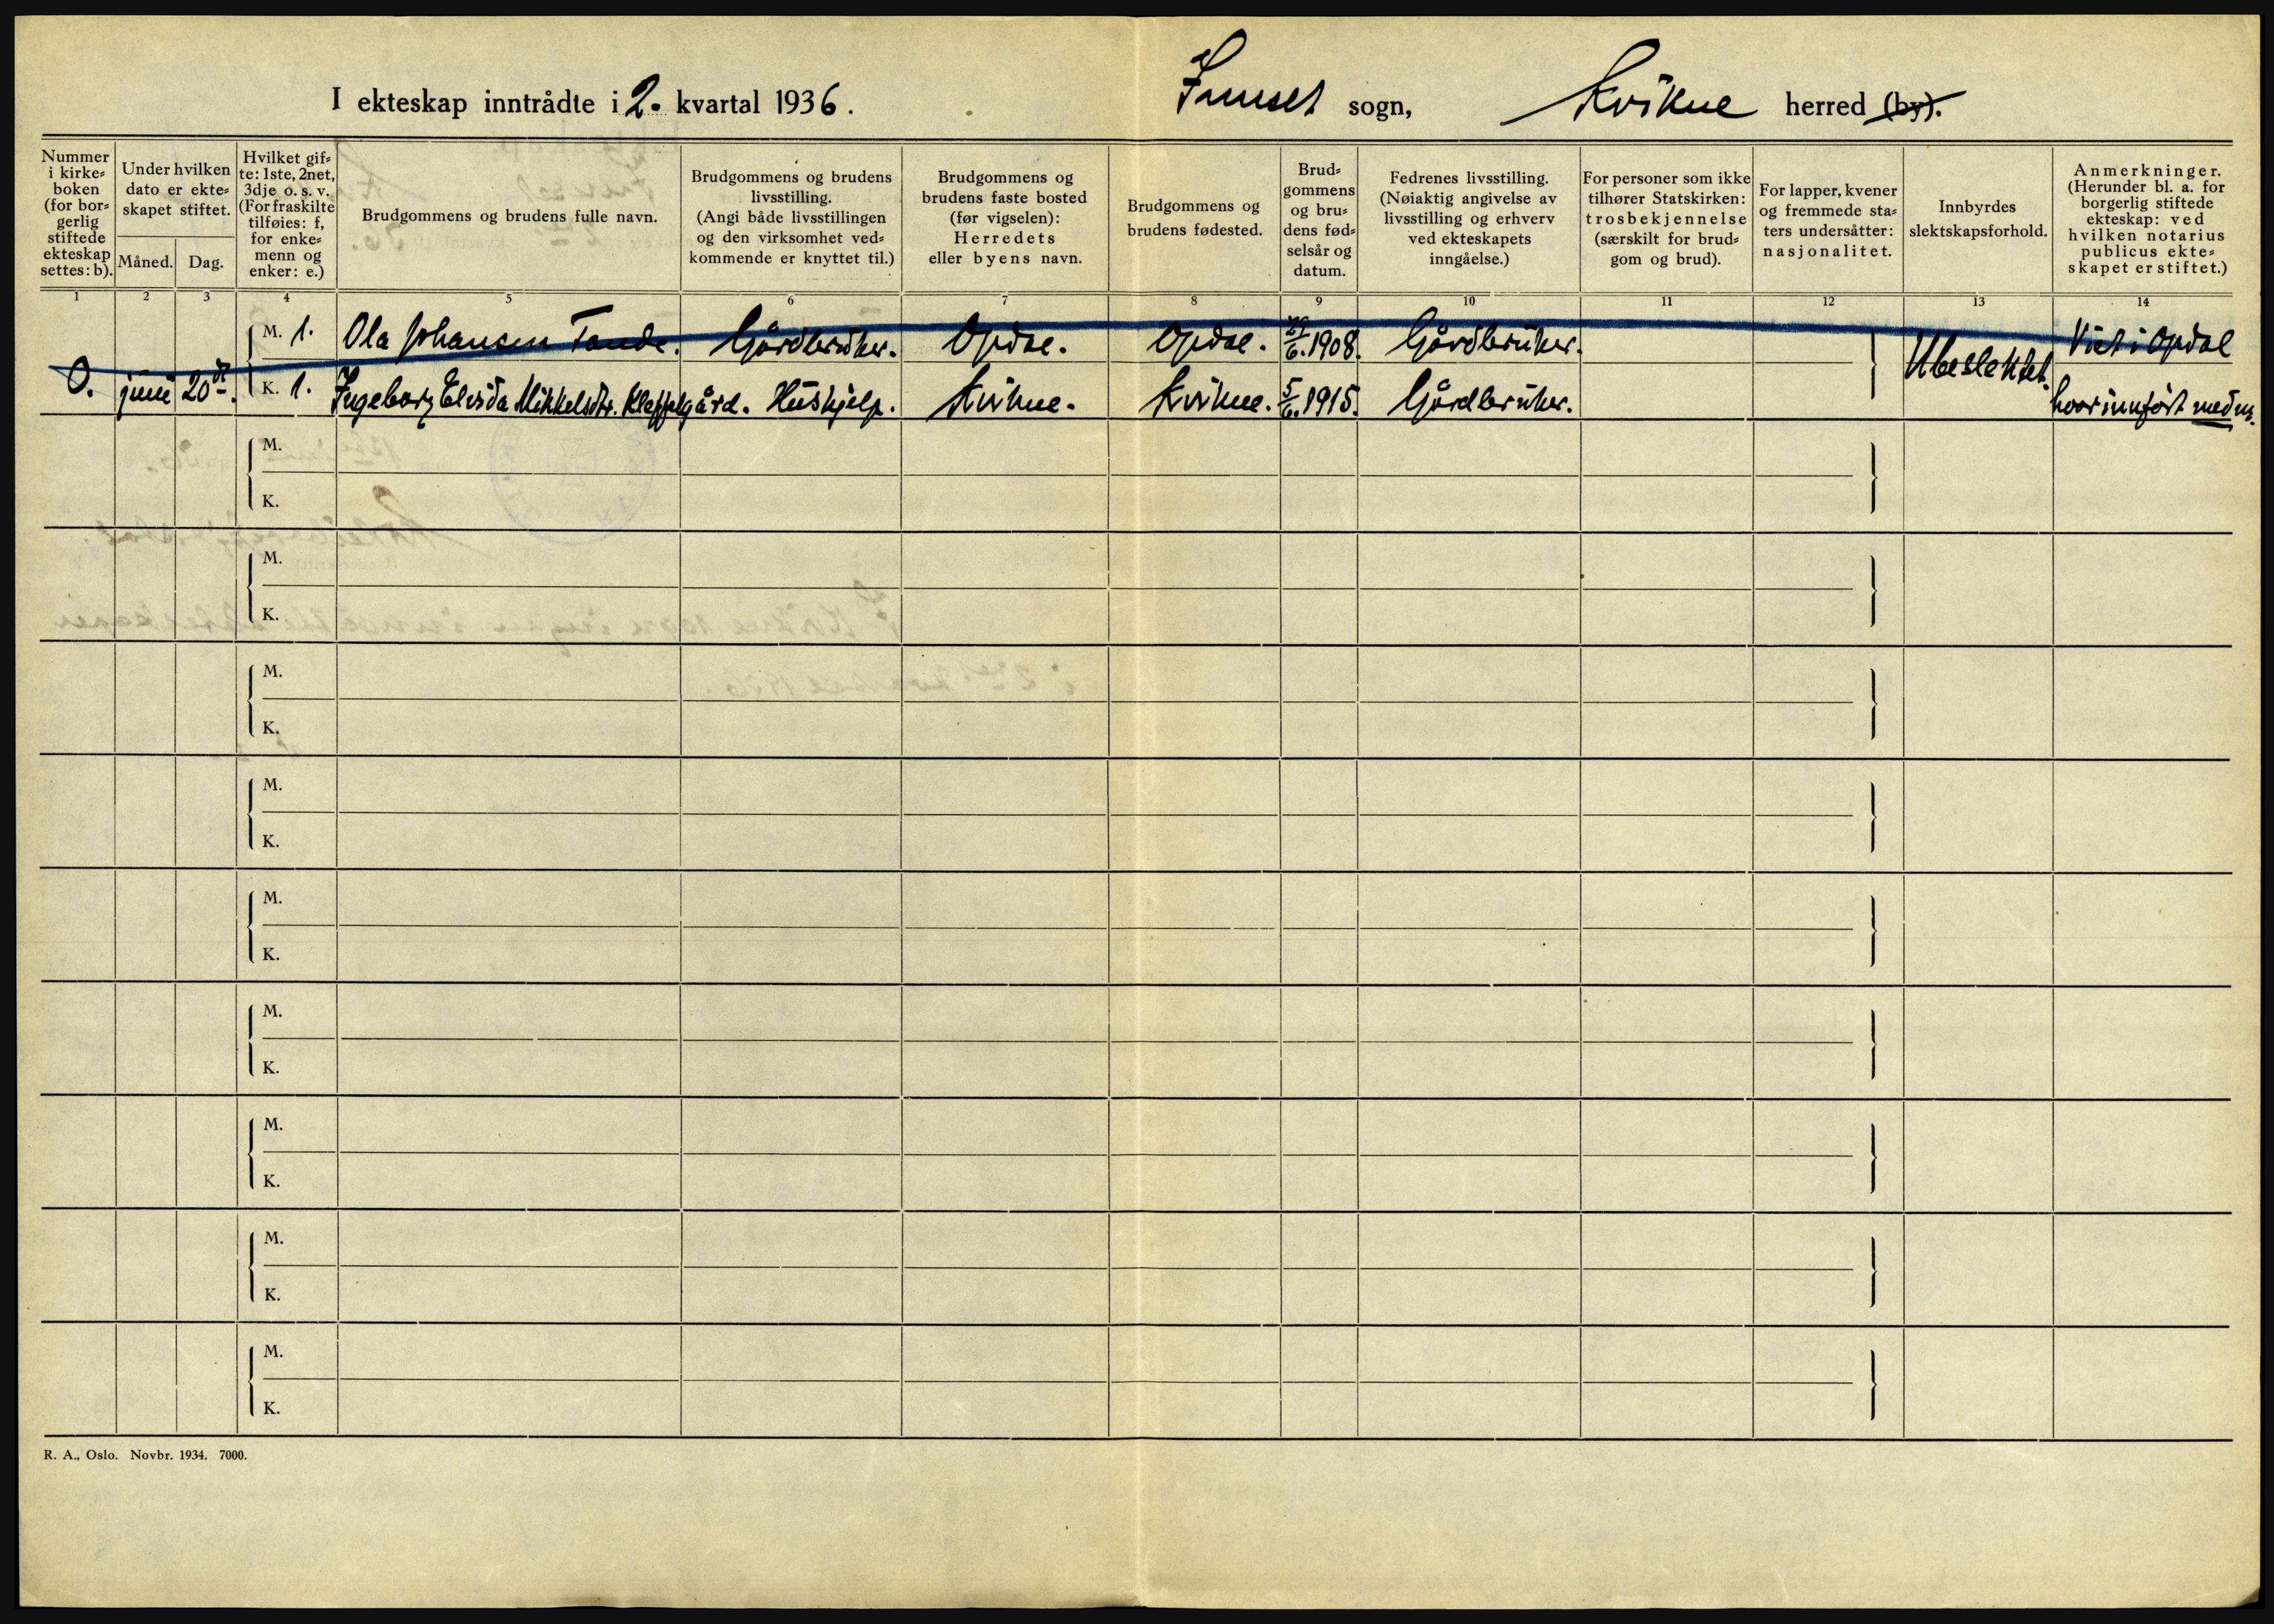 I ekteskap inntrådte i 2. kvartal 1936.
Innset sogn,
Kvikne herred (by).
Nummer
i kirke=
boken
(for bor=
gerlig
stiftede
ekteskap
settes: b).
Under hvilken
dato er ekte=
skapet stiftet.
Måned.
Dag.
Hvilket gif=
te: 1ste, 2net,
3dje o. s. v.
(For fraskilte
tilføies: f,
for enke=
menn og
enker: e.)
Brudgommens og brudens fulle navn.
Brudgommens og brudens
livsstilling.
(Angi både livsstillingen
og den virksomhet ved=
kommende er knyttet til.)
Brudgommens og
brudens faste bosted
(før vigselen):
Herredets
eller byens navn.
Brudgommens og
brudens fødested.
Brud=
gommens
og bru=
dens fød=
selsår og
datum.
Fedrenes livsstilling.
(Nøiaktig angivelse av
livsstilling og erhverv
ved ekteskapets
inngåelse.)
For personer som ikke
tilhører Statskirken:
trosbekjennelse
(særskilt for brud=
gom og brud).
For lapper, kvener
og fremmede sta=
ters undersåtter:
nasjonalitet.
Innbyrdes
slektskapsforhold.
Anmerkninger.
(Herunder bl. a. for
borgerlig stiftede
ekteskap: ved
hvilken notarius
publicus ekte=
skapet er stiftet.)
1 2 3 4 5 6 7 8 9 10 11 12 13 14
M. 1. Ola Johansen Tande. Gårdbruker. Opdal. Opdal. 6. 1908. Gårdbruker. Viet i Opdal
0. juni 20de. Ubeslektet.
K. 1. Ingeborg Elvida Mikkelsdtr. Kleppgård. Hushjelp. Kvikne. Kvikne. 5/6. 1915. Gårdbruker. hvor innført med nr.
M.
K.
M.
K.
M.
K.
M.
K.
M.
K.
M.
K.
M.
K.
M.
K.
M.
K.
R. A., Oslo. Novbr. 1934. 7000.